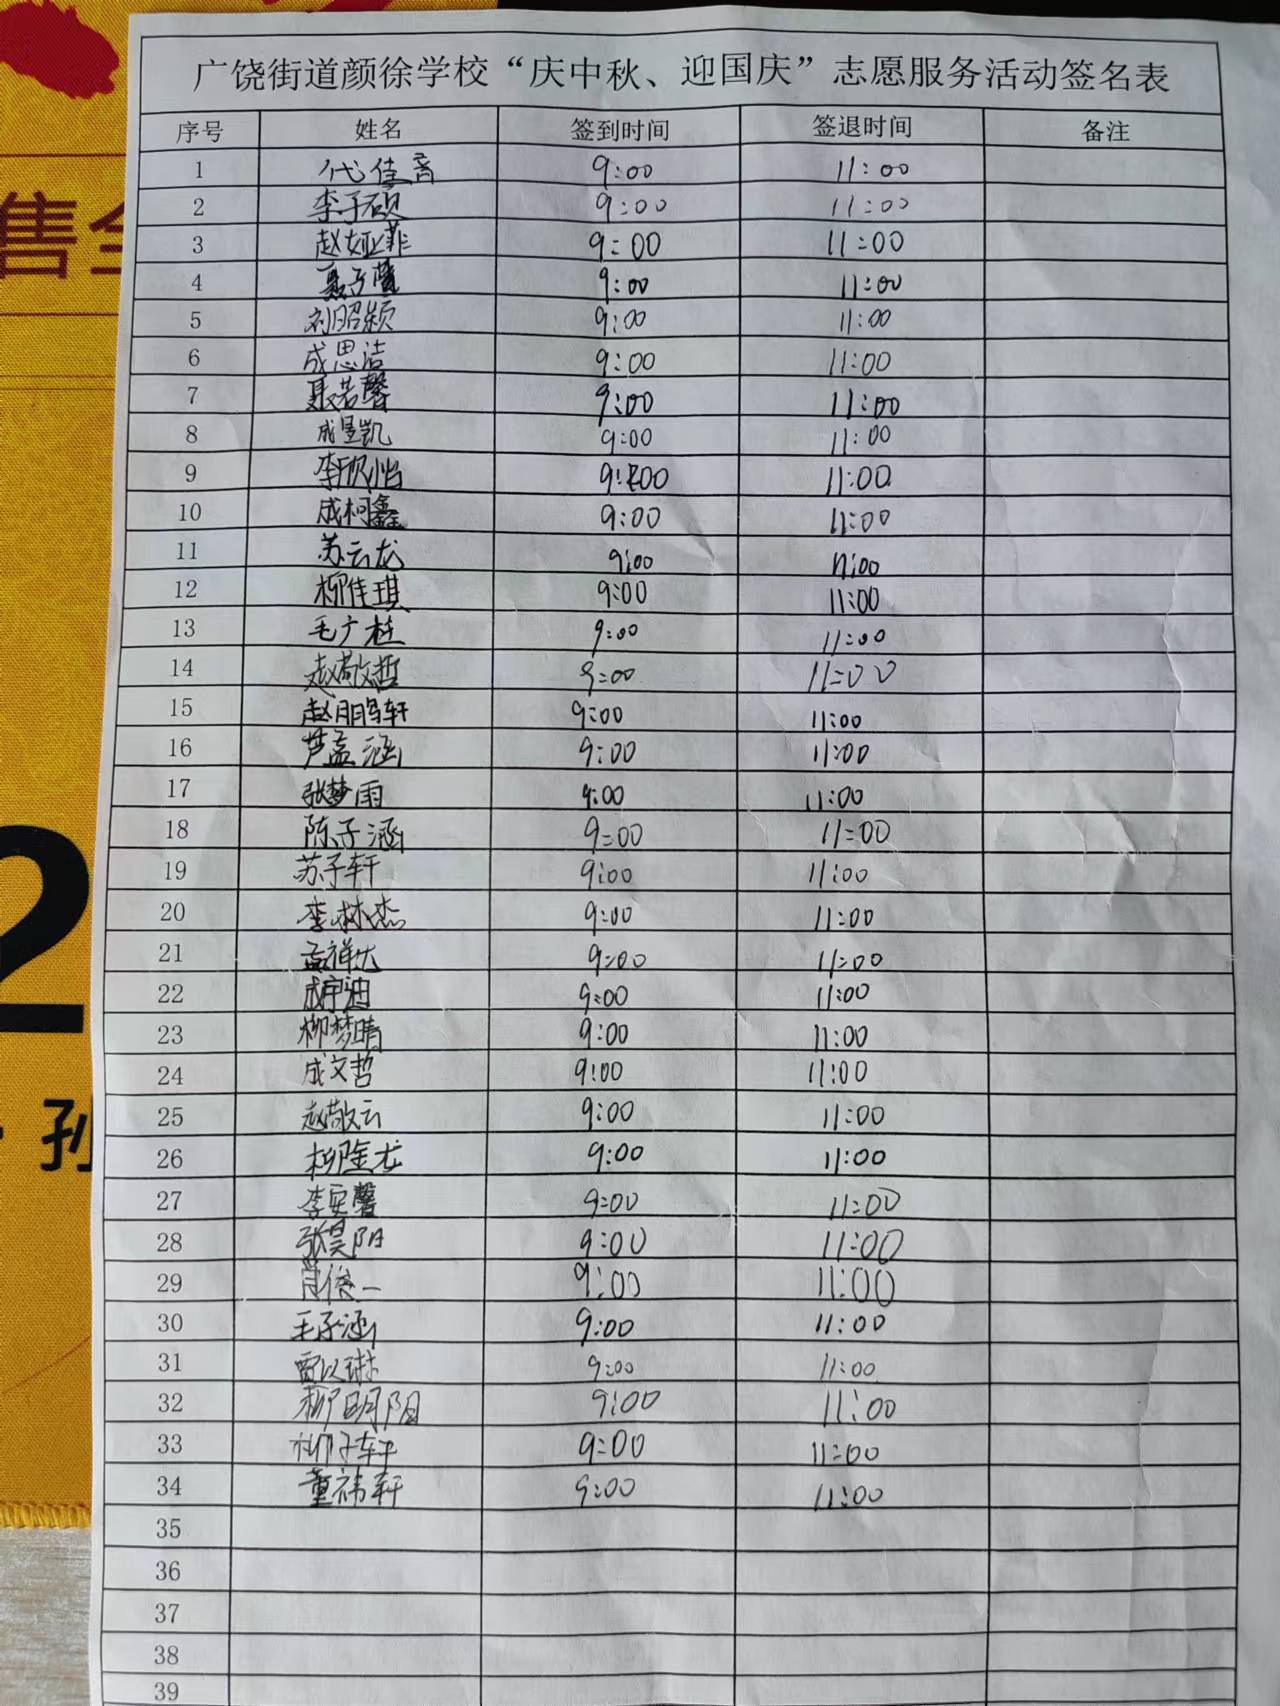 售全
2
孙
广饶街道颜徐学校“庆中秋、迎国庆”志愿服务活动签名表
序号 姓名 签到时间 签退时间 备注
1 代佳 9:00 11:00
2 李子硕 9:00 11:00
3 赵娅菲 9:00 11:00
4 聂子萱 9:00 11:00
5 刘昭颖 9:00 11:00
6 成思洁 9:00 11:00
7 聂若馨 9:00 11:00
8 成昱凯 9:00 11:00
9 李欣怡 9:00 11:00
10 成柯鑫 9:00 11:00
11 苏云龙 9:00 11:00
12 柳佳琪 9:00 11:00
13 毛广桂 9:00 11:00
14 赵敬哲 9:00 11:00
15 赵鹏轩 9:00 11:00
16 芦孟涵 9:00 11:00
17 张梦雨 9:00 11:00
18 陈子涵 9:00 11:00
19 苏子轩 9:00 11:00
20 李林杰 9:00 11:00
21 孟祥龙 9:00 11:00
22 成宇迪 9:00 11:00
23 柳梦晴 9:00 11:00
24 成文哲 9:00 11:00
25 赵敬云 9:00 11:00
26 柳金龙 9:00 11:00
27 李安馨 9:00 11:00
28 张昊阳 9:00 11:00
29 肖俊一 9:00 11:00
30 王子涵 9:00 11:00
31 贾以琳 9:00 11:00
32 柳明阳 9:00 11:00
33 柳子轩 9:00 11:00
34 董祎轩 9:00 11:00
35
36
37
38
39